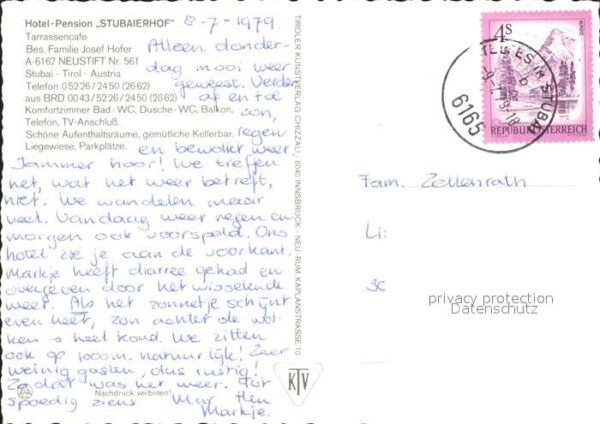 Hotel-Pension „STUBAIERHOF"
Tarrassencafe
Bes. Familie Josef Hofer
A-6167 NEUSTIFT Nr. 561
Stubai - Tirol - Austria
Telefon 0 52 26 / 24 50 (26 62)
aus BRD 00 43 / 52 26 / 24 50 (26 62)
Komfortzimmer Bad - WC, Dusche - WC, Balkon,
Telefon, TV-Anschluß.
Schöne Aufenthaltsräume, gemütliche Kellerbar.
Liegewiese, Parkplätze.
8-7-1979
Alleen donder-
dag mooi weer
geweest. Verder
af en toe
zon,
regen
en bewolkt weer
Jammer hoor! We treffen
het, wat het weer betreft,
niet. We wandelen maar
veel. Vandaag weer regen en
morgen ook voorspeld. Ons
hotel zie je aan de voorkant.
Markje heeft diarree gehad en
overgeven door het wisselende
weer. Als het zonnetje schijnt
even heet, zon achter de wol-
ken is heel koud. We zitten
ook op 1000m. natuurlijk! Zeer
weinig gasten, dus rustig!
Zo dat was het weer. Tot
spoedig ziens. Mar Hen
Markje.
Nachdruck verboten!
TIROLER KUNSTVERLAG CHIZZALI, 6040 INNSBRUCK - NEU-RUM, KAPLANSTRASSE 10
KTV
4S
REPUBLIK ÖSTERREICH
TELFES IM STUBAI
6165
Fam. Zellenrath
Li:
3C
privacy protection
Datenschutz